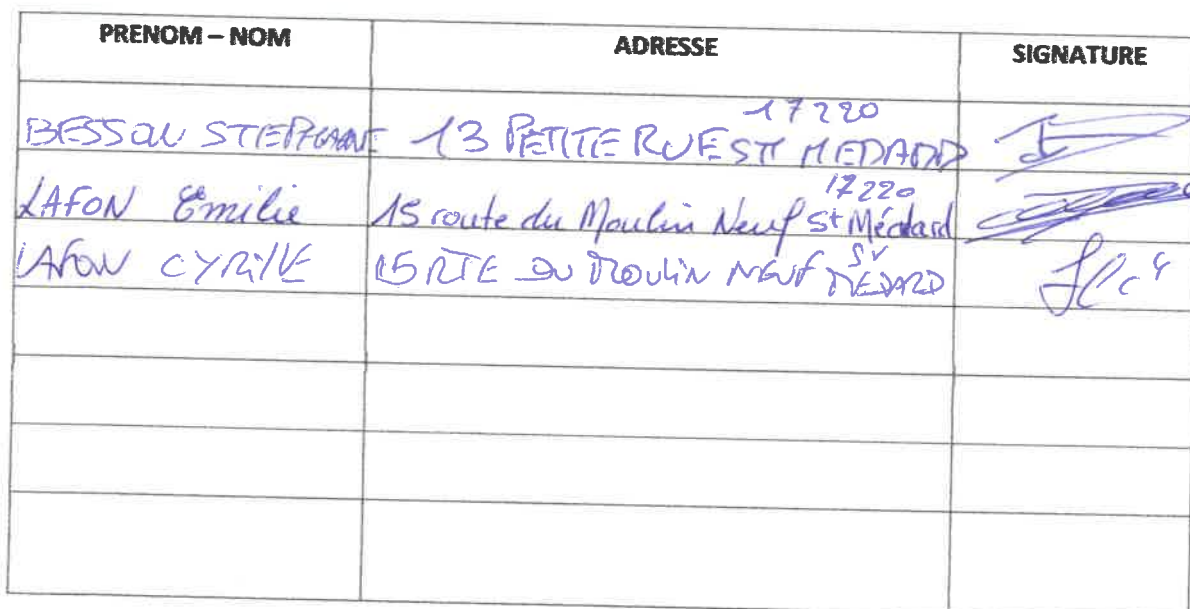 PRENOM – NOM ADRESSE SIGNATURE
17220
BESSON STEPHANE 13 PETITE RUE ST MEDARD
17220
LAFON Emilie 15 route du Moulin Neuf St Médard
LAFON CYRILLE 15 RTE DU MOULIN NEUF ST MEDARD